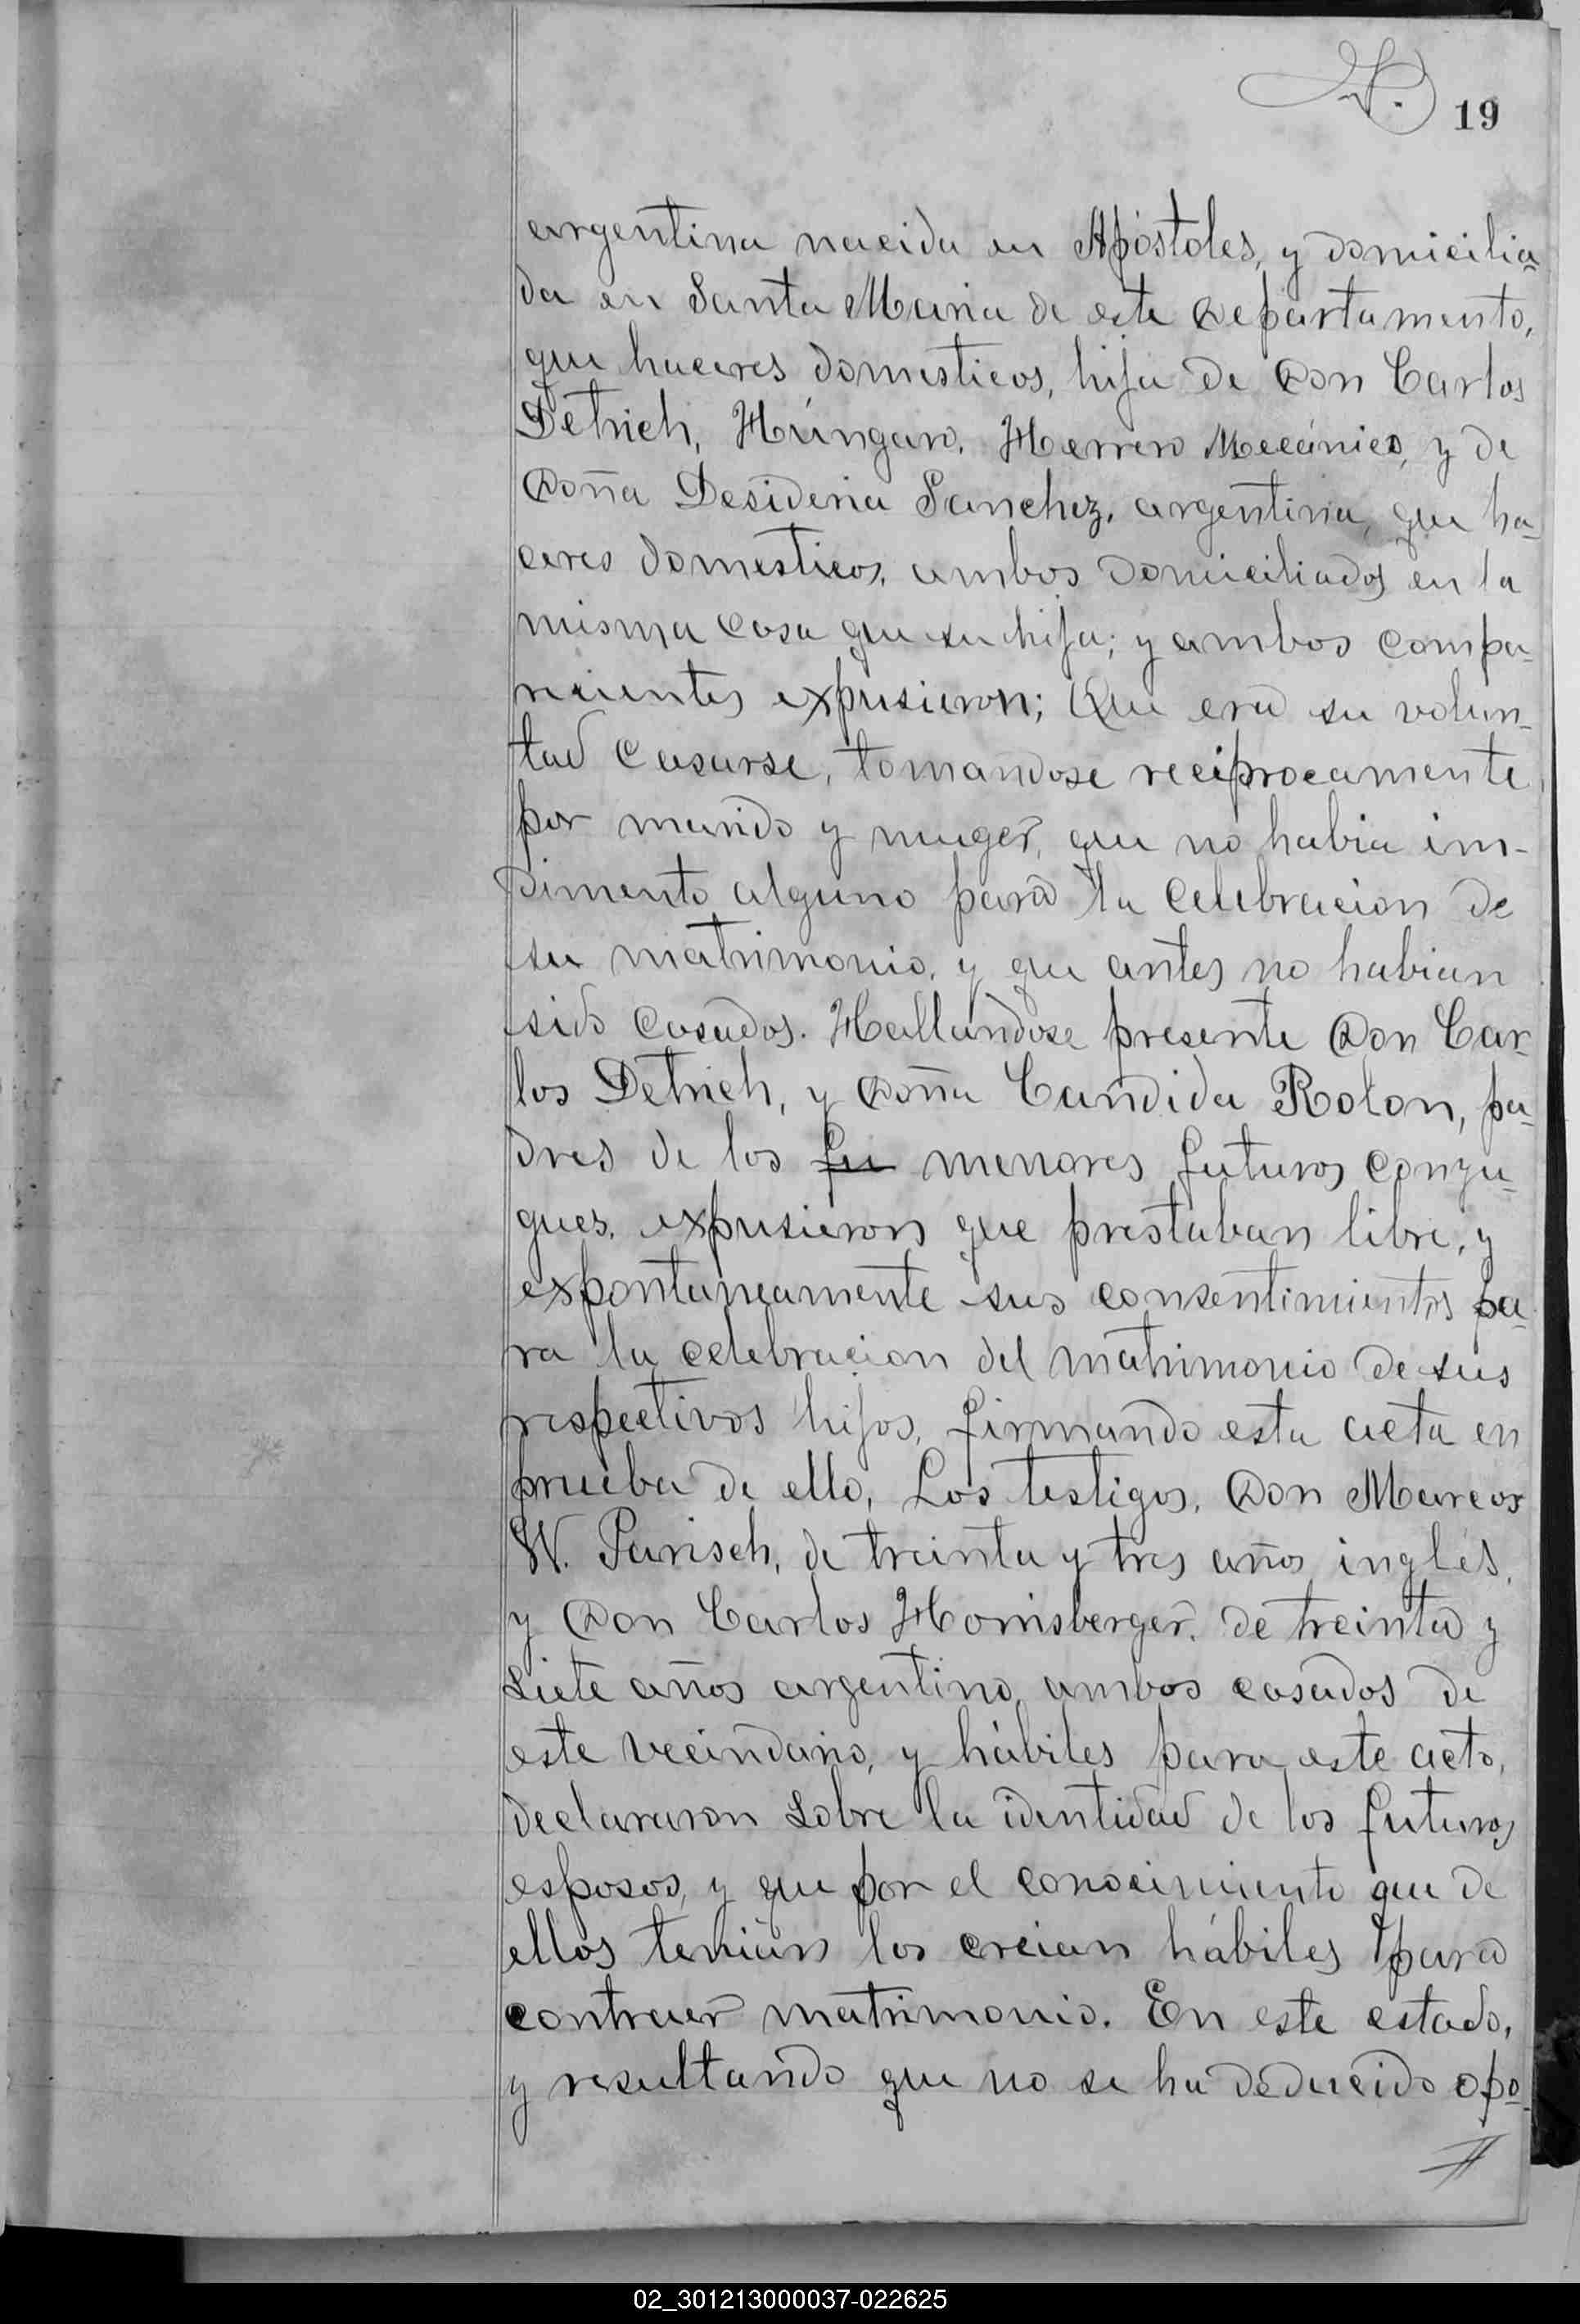 19
argentina nacida en Apóstoles, y domicilia-
da en Santa Maria de este Departamento,
que haceres domesticos, hija de Don Carlos
Detrich, Húngaro, Herrero Mecánico, y de
Doña Desideria Sanchez, argentina, que ha-
ceres domesticos, ambos domiciliados en la
misma casa que su hija; y ambos compa-
recientes expusieron; Que era su volun-
tad casarse, tomandose reciprocamente
por marido y muger, que no habia im-
dimento alguno para la celebracion de
su matrimonio, y que antes no habian
sido casados. Hallandose presente Don Car-
los Detrich, y Doña Candida Rolon, pa-
dres de los fu menores futuros conyu-
gues, expusieron que prestaban libre, y
expontaneamente sus consentimientos pa-
ra la celebracion del matrimonio de sus
respectivos hijos, firmando esta acta en
prueba de ello, Los testigos, Don Marcos
W. Parisch, de treinta y tres años inglés,
y Don Carlos Hornisberger, de treinta y
siete años argentino, ambos casados de
este vecindario, y hábiles para este acto,
declararon sobre la identidad de los futuros
esposos, y que por el conocimiento que de
ellos tenian los creian hábiles para
contraer matrimonio. En este estado,
y resultando que no se ha deducido opo-
02_301213000037-022625